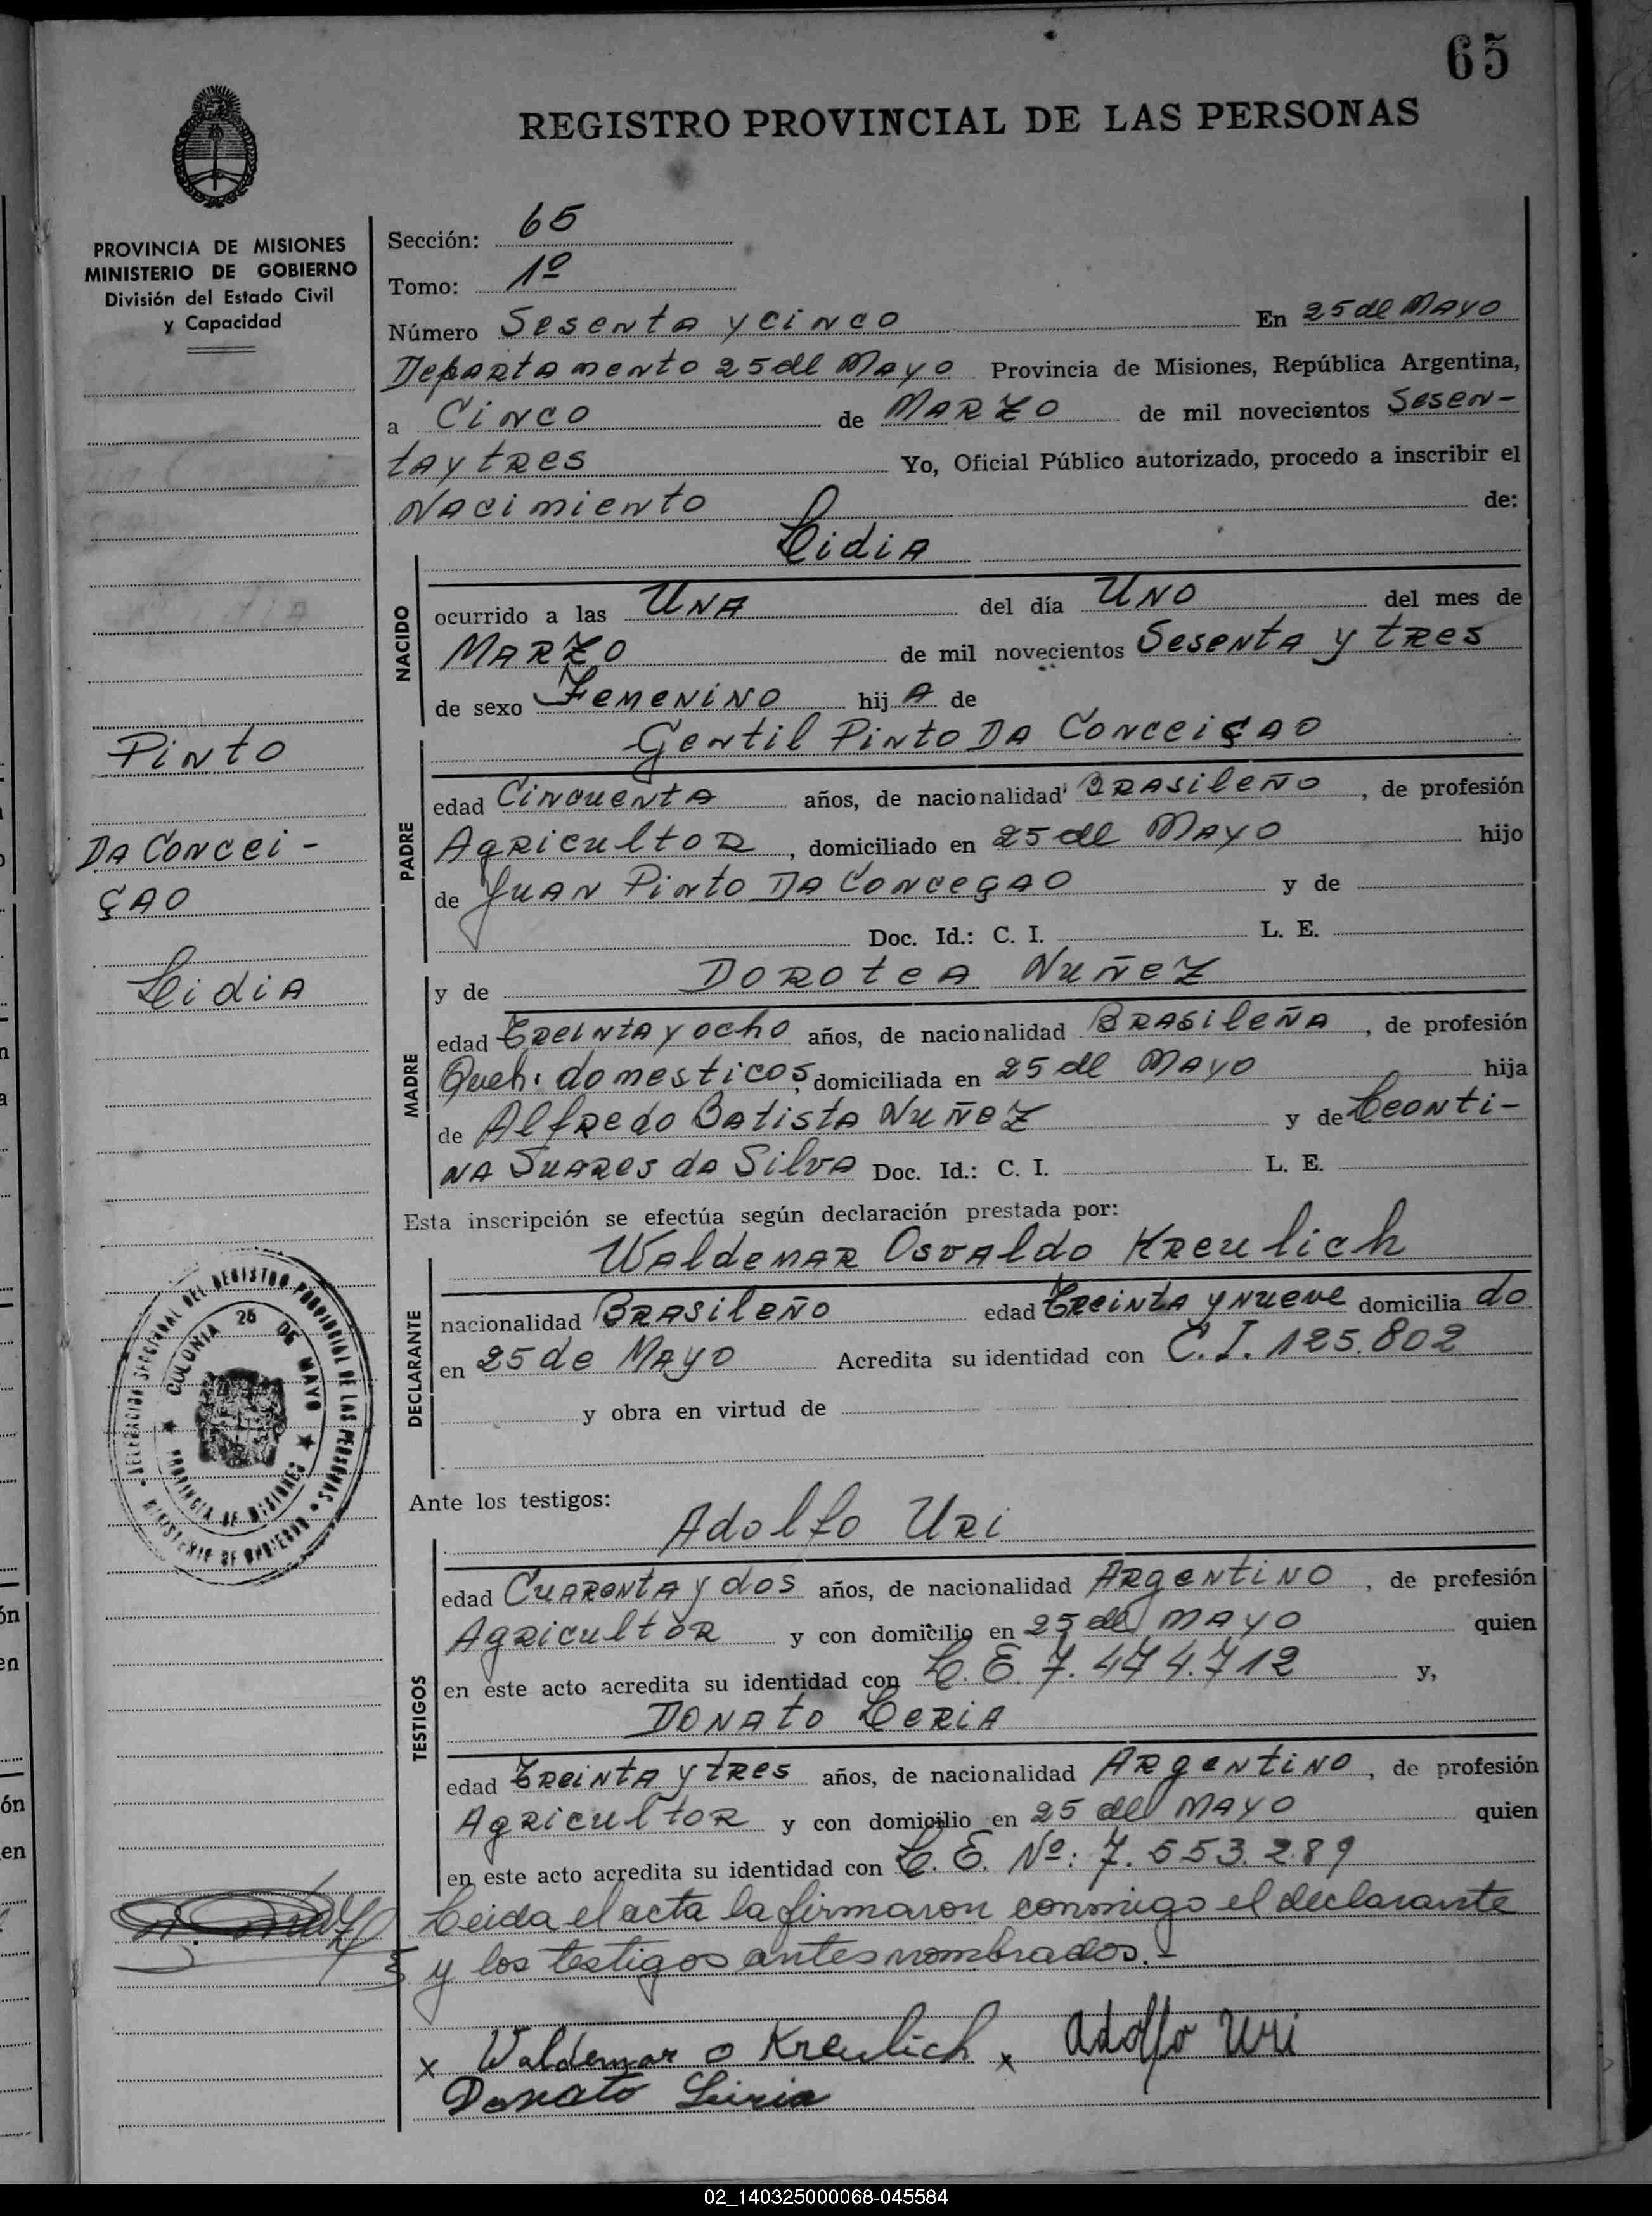 65
REGISTRO PROVINCIAL DE LAS PERSONAS
PROVINCIA DE MISIONES
MINISTERIO DE GOBIERNO
División del Estado Civil
y Capacidad
Sección: 65
Tomo: 1º
Número Sesenta y cinco En 25 de Mayo
Departamento 25 de Mayo Provincia de Misiones, República Argentina,
a Cinco de Marzo de mil novecientos Sesen-
ta y tres Yo, Oficial Público autorizado, procedo a inscribir el
Nacimiento de:
Lidia
NACIDO
ocurrido a las Una del día Uno del mes de
Marzo de mil novecientos Sesenta y tres
de sexo Femenino hija de
Gentil Pinto Da Conceiçao
PADRE
edad Cincuenta años, de nacionalidad Brasileño, de profesión
Agricultor, domiciliado en 25 de Mayo hijo
de Juan Pinto Da Conceçao y de
Doc. Id.: C. I. L. E.
y de Dorotea Nuñez
MADRE
edad Treinta y ocho años, de nacionalidad Brasileña, de profesión
Queh. domesticos, domiciliada en 25 de Mayo hija
de Alfredo Batista Nuñez y de Leonti-
na Suares da Silva Doc. Id.: C. I. L. E.
Esta inscripción se efectúa según declaración prestada por:
Waldemar Osvaldo Kreulich
DECLARANTE
nacionalidad Brasileño edad Treinta y nueve domiciliado
en 25 de Mayo Acredita su identidad con C.I. 125.802
y obra en virtud de
Ante los testigos:
Adolfo Uri
TESTIGOS
edad Cuarenta y dos años, de nacionalidad Argentino, de profesión
Agricultor y con domicilio en 25 de Mayo quien
en este acto acredita su identidad con L.E. 7.474.712 y,
Donato Leria
edad Treinta y tres años, de nacionalidad Argentino, de profesión
Agricultor y con domicilio en 25 de Mayo quien
en este acto acredita su identidad con L.E. Nº: 7.553.289
Leida el acta la firmaron conmigo el declarante
y los testigos antes nombrados.-
x Waldemar o Kreulich x Adolfo Uri
Donato Leiria
Pinto
Da Concei-
çao
Lidia
DELEGACION SECCIONAL DEL REGISTRO PROVINCIAL DE LAS PERSONAS
MINISTERIO DE GOBIERNO
COLONIA 25 DE MAYO
PROVINCIA DE MISIONES
02_140325000068-045584